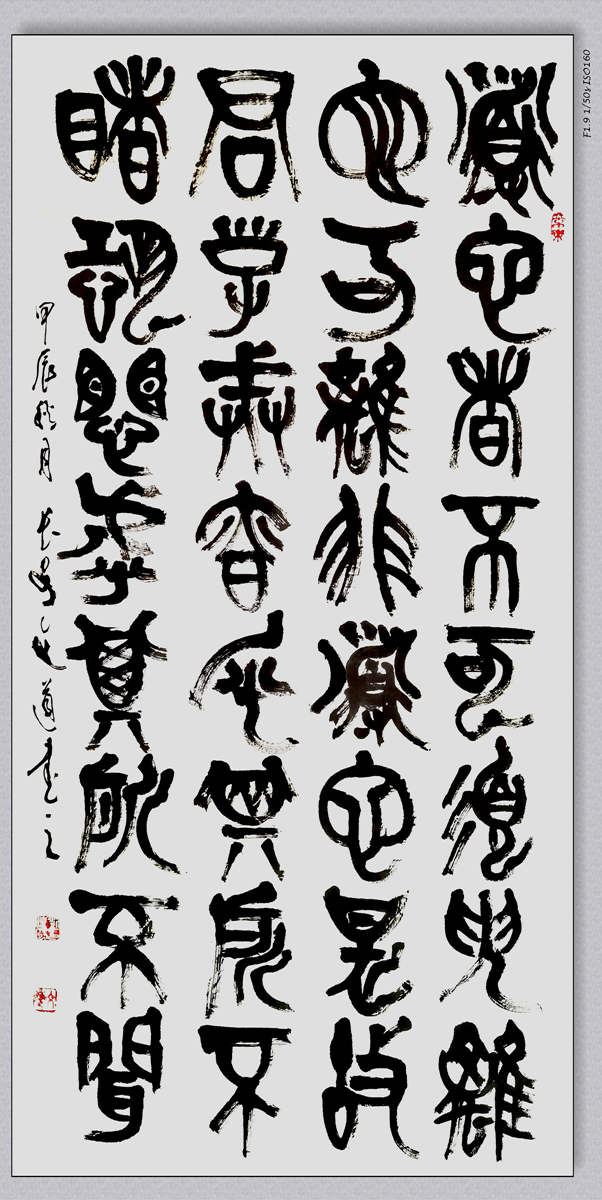 道也者不可須臾離
也可離非道也是故
君子戒慎乎其所不
睹恐懼乎其所不聞
甲辰秋月 道書之
F1.9 1/50s ISO160